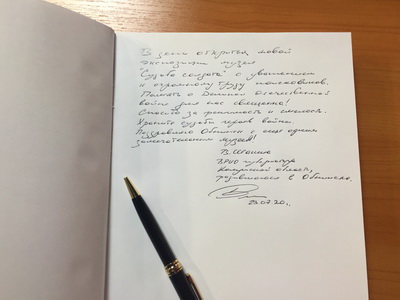 В день открытия новой
экспозиции музея
"Судьба солдата" с уважением
к огромному труду поисковиков.
Память о Великой Отечественной
войне для нас священна!
Спасибо за
Храните судьбы героев войны.
Поздравляю Обнинск с еще одним
замечательным музеем!
В. Шапша
ВРИО губернатора
Калужской области,
родившегося в Обнинске.
23.07.20г.